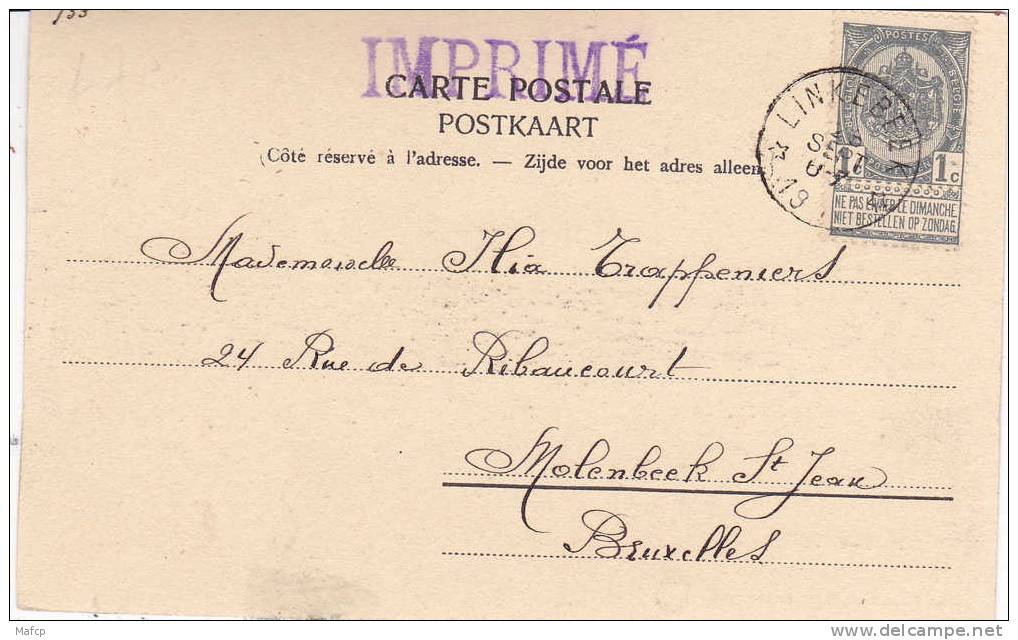 133
IMPRIMÉ
CARTE POSTALE
POSTKAART
(Côté réservé à l'adresse. — Zijde voor het adres alleen
POSTES
1c 1c
NE PAS LIVRER LE DIMANCHE
NIET BESTELLEN OP ZONDAG
LINKEBEEK
SEPT
13
Mademoiselle Ilia Trappeniers
24 Rue de Ribaucourt
Molenbeek St Jean
Bruxelles
Mafcp
delcampe.net